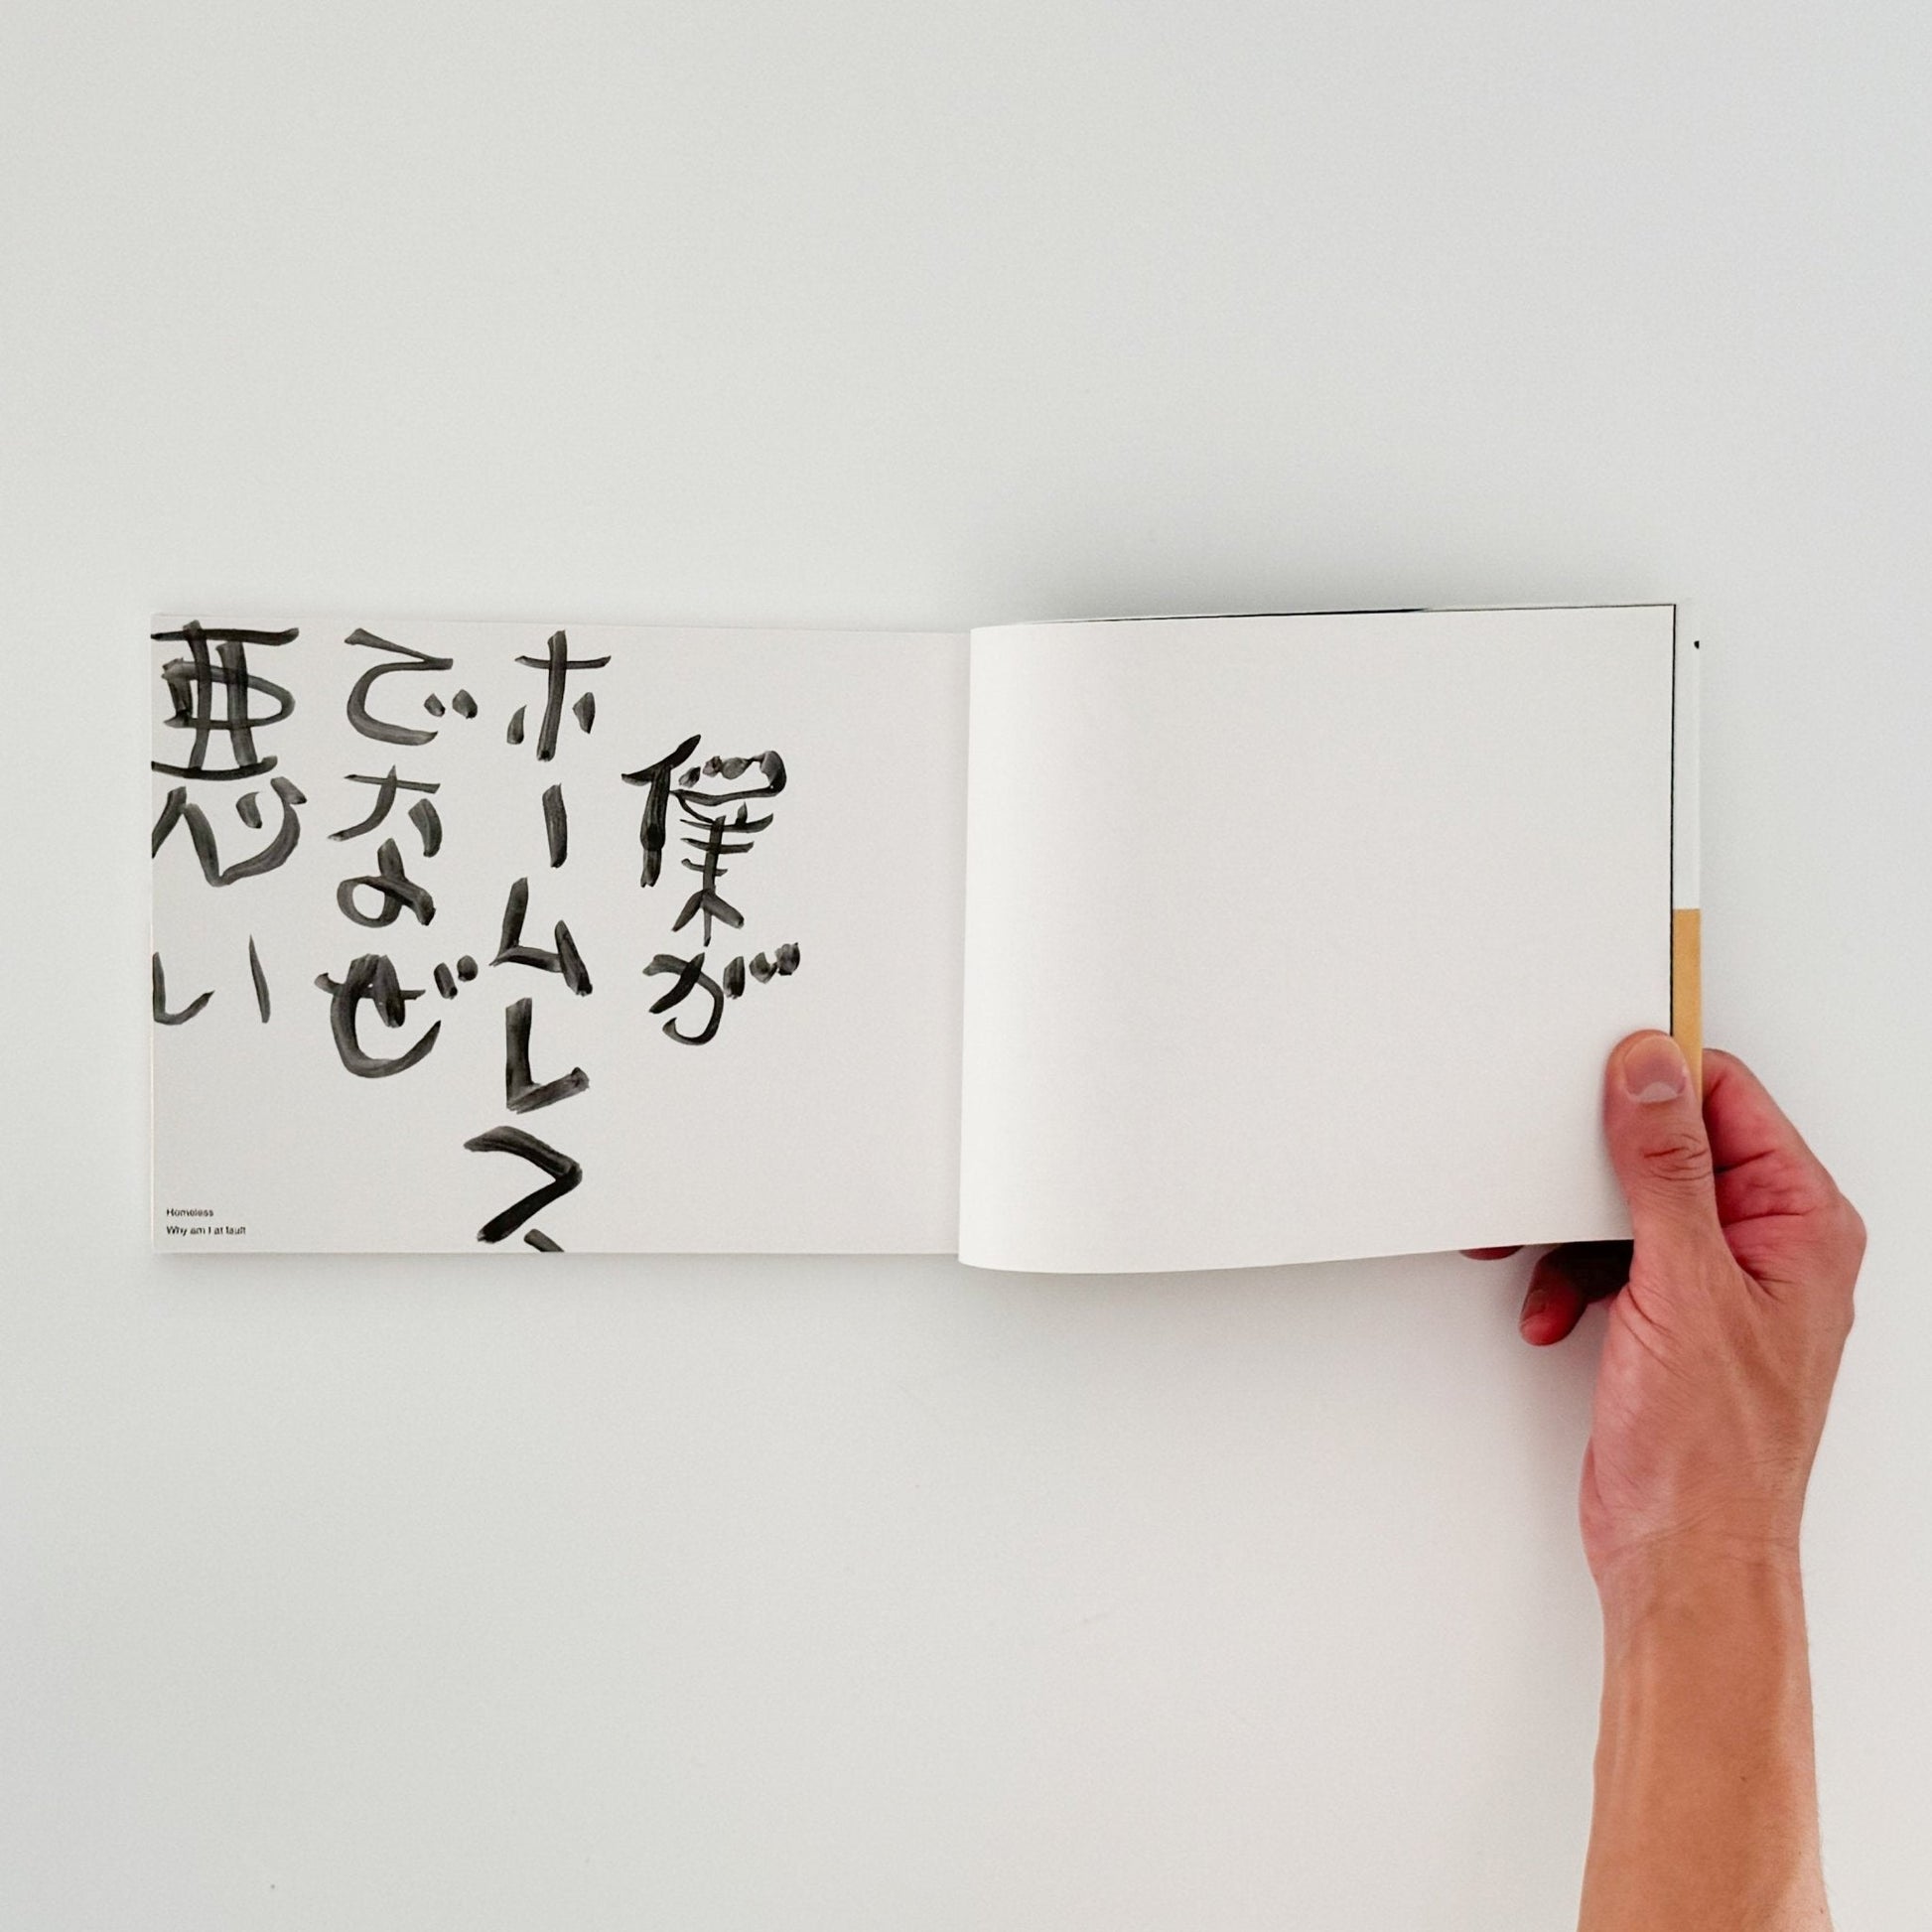 僕が
ホームレス
でなぜ
悪い
Homeless
Why am I at fault